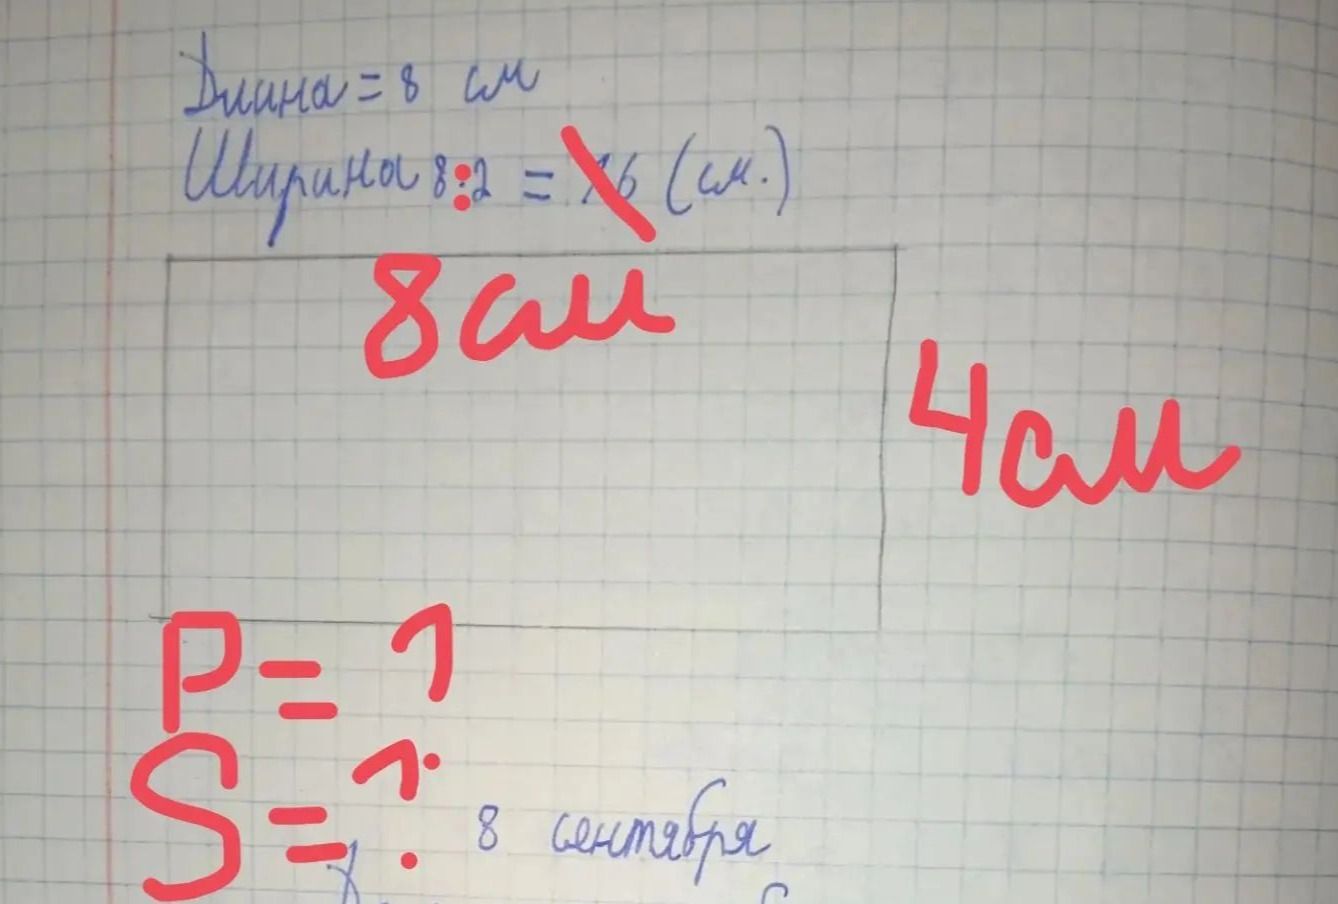 Длина = 8 см
Ширина 8:2 = 16 (см.)
8 см
4 см
P = ?
S = ?
8 сентября